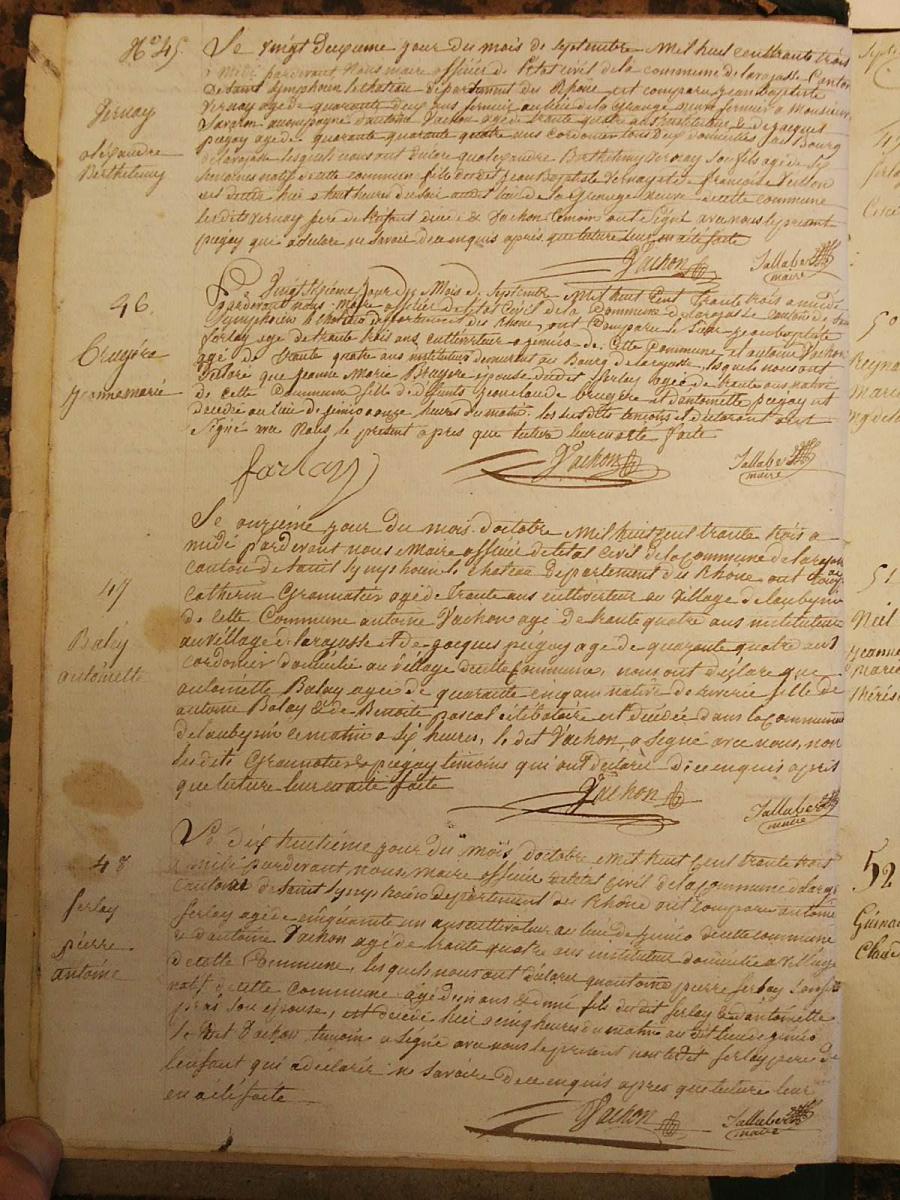 N° 45.
Vernay
alexandre
Berthelemy
Le vingt deuxieme jour du mois de septembre mil huit cent trente trois
à midi pardevant nous maire officier de l'état civil de la commune de larajasse Canton
de saint symphorien le chateau département du Rhône est comparu jean baptiste
Vernay agé de quarante deux ans fermier au lieu de la Grange neuve fermier a Monsieur
Savaron accompagné d'antoine Vachon agé de trente quatre ans instituteur & de jacques
piegay agé de quarante quarante quatre ans cordonier tous deux domiciliés au Bourg
de larajasse lesquels nous ont déclaré qu'alexandre Berthelemy Vernay son fils agé de
natif de cette commune fils dudit jean baptiste Vernay et de françoise
est décédé hier a huit heures du soir audit lieu de la Grange neuve de cette commune
le dit Vernay père de l'enfant & Vachon temoin ont signé avec nous le présent
piegay qui a déclaré ne savoir de ce enquis après que lecture leur en a été faite
Vachon
Jallabert
maire
46.
Bruyere
jeanne marie
Vingt septieme jour du Mois de Septembre Mil huit Cent trente trois a midi
pardevant nous Maire officier de l'état Civil de la Commune de larajasse Canton de saint
symphorien le chateau département du Rhône, ont Comparu le sieur jean baptiste
ferlay agé de trente trois ans, cultivateur a jimio de Cette Commune et antoine Vachon
agé de trente quatre ans instituteur demeurant au Bourg de larajasse, lesquels nous ont
Déclaré que jeanne Marie Bruyere épouse dudit ferlay agée de trente ans native
de cette Commune fille de défunts jean claude bruyere et antoinette piegay est
décédée au lieu de jimio onze heures du matin. les susdits temoins et déclarant ont
signé avec Nous le présent apres que lecture leur en a été faite
farlay
Vachon
Jallabert
maire
47
Balay
antoinette
Le onzieme jour du mois d'octobre mil huit cent trente trois a
midi pardevant nous Maire officier de l'état civil de la Commune de larajasse
canton de saint symphorien le chateau département du Rhône ont comparu
Catherin Grannatier agé de trente ans cultivateur au village de laubepin
de cette Commune antoine Vachon agé de trente quatre ans instituteur
au village de larajasse et de jacques piegay agé de quarante quatre ans
cordonier domicilié au village de cette Commune, nous ont déclaré que
antoinette Balay agée de quarante cinq ans native de riverie fille de
antoine Balay & de Benoite pascal célibataire est décédée dans la commune
de laubepin ce matin a six heures, le dit Vachon a signé avec nous, non
les dits Grannatier & piegay temoins qui ont déclaré de ce enquis après
que lecture leur en a été faite
Vachon
Jallabert
maire
48
ferlay
pierre
antoine
Le dix huitieme jour du mois d'octobre mil huit cent trente trois
a midi pardevant nous maire officier de l'état Civil de la Commune de larajasse
canton de saint symphorien département du Rhône ont comparu antoine
ferlay agé de cinquante un ans cultivateur au lieu de jimio de cette commune
et d'antoine Vachon agé de trente quatre ans instituteur domicilié au village
de cette Commune, lesquels nous ont déclaré qu'antoine pierre ferlay son fils
natif de cette commune agé d'un an & demi fils du dit ferlay & d'antoinette
son épouse, est décédé hier a cinq heures du matin au dit lieu de jimio
le dit Vachon temoin a signé avec nous le présent non le dit ferlay père de
l'enfant qui a déclaré ne savoir de ce enquis apres que lecture leur
en a été faite
Vachon
Jallabert
maire
50
Reyna
Marie
51
Neil
jeanne
marie
Thérèse
52
Guina
Claud